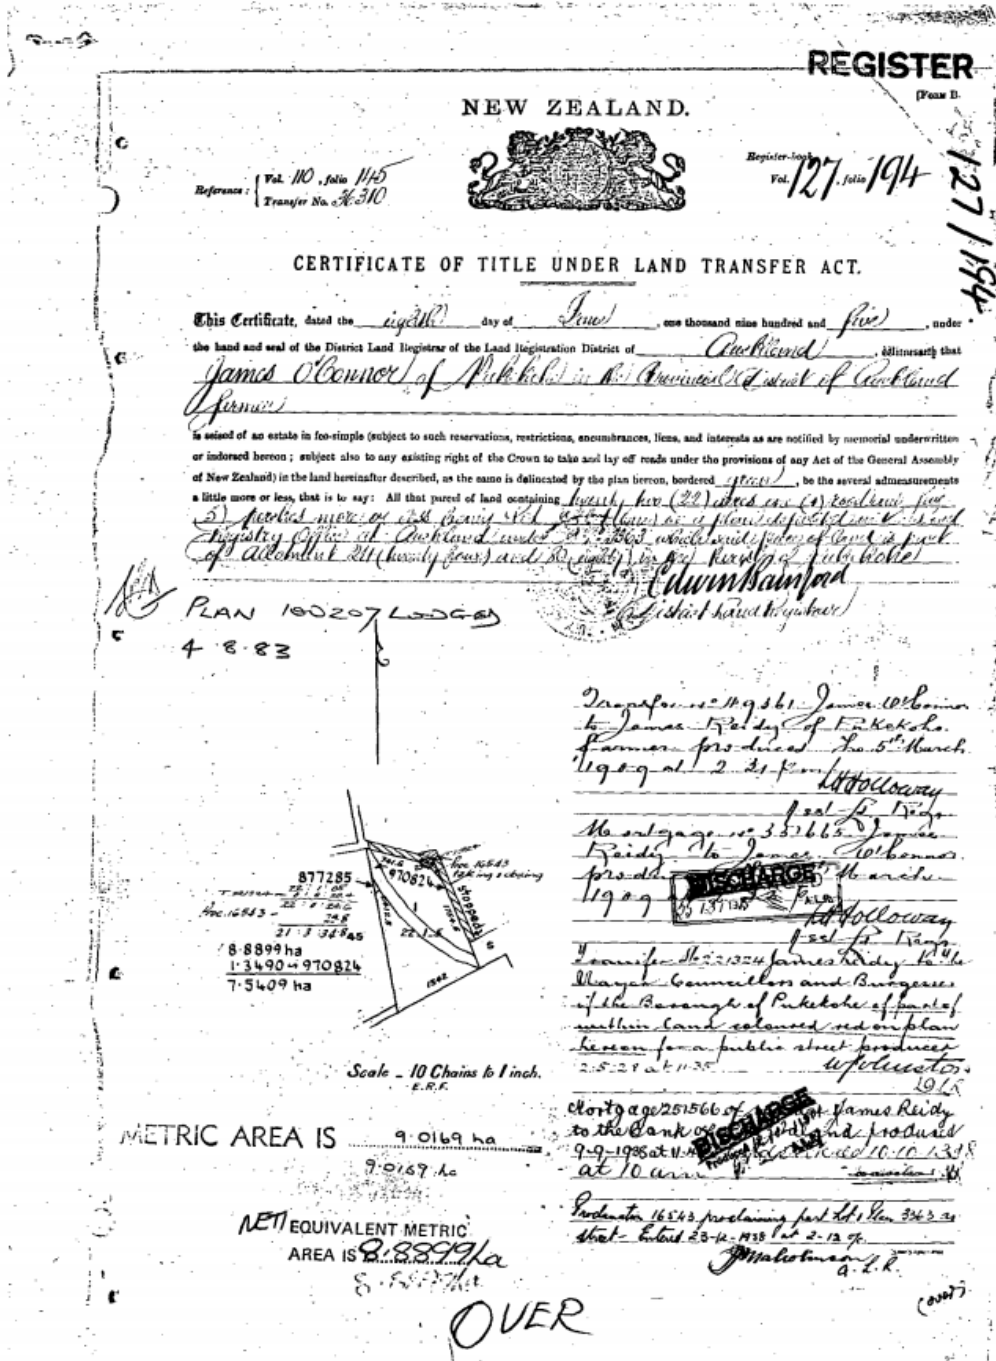 REGISTER
[Form B.
NEW ZEALAND.
127/194
Reference: Vol. 110, folio 145
Transfer No. H.310
Register-book,
Vol. 127, folio 194
CERTIFICATE OF TITLE UNDER LAND TRANSFER ACT.
This Certificate, dated the eighth day of June, one thousand nine hundred and five, under
the hand and seal of the District Land Registrar of the Land Registration District of Auckland, Witnesseth that
James O'Connor of Pukekohe in the Provincial District of Auckland
farmer
is seised of an estate in fee-simple (subject to such reservations, restrictions, encumbrances, liens, and interests as are notified by memorial underwritten
or indorsed hereon; subject also to any existing right of the Crown to take and lay off roads under the provisions of any Act of the General Assembly
of New Zealand) in the land hereinafter described, as the same is delineated by the plan hereon, bordered green, be the several admeasurements
a little more or less, that is to say: All that parcel of land containing twenty two (22) acres one (1) rood five
(5) perches more or less being Lot on a plan deposited in the Land
Registry Office at Auckland under No. 3363 which said piece of land is part
of Allotment 24 (twenty four) and 80 (eighty) in the Parish of Pukekohe
Edwin Bamford
District Land Registrar
PLAN 100207 LODGED
4.8.83
Transfer No 49361 James O'Connor
to James Reidy of Pukekohe
farmer produced the 5th March
1909 at 2.21 pm
Holloway
Asst. Lr. Regr.
Mortgage No 35665 James
Reidy to James O'Connor
March
1909
DISCHARGE
Holloway
Asst. Lr. Regr.
877285
970824
Proc 16543
taking & closing
stopped
1
22.1.5
Proc. 16543 -
8.8899 ha
1.3490 - 970824
7.5409 ha
Transfer No 221324 James Reidy to the
Mayor Councillors and Burgesses
of the Borough of Pukekohe of part of
within land coloured red on plan
hereon for a public street produced
2.5.28 at 11.35
Scale - 10 Chains to 1 inch.
E.R.F.
Mortgage 251566 of James Reidy
to the Bank of produced
9-9-1938 at 10.10.1938
at 10 am
DISCHARGE
METRIC AREA IS 9.0169 ha
9.0169 ha
NETT EQUIVALENT METRIC
AREA IS 8.8899 ha
Proclamation 16543 proclaiming part Lot 1 Plan 3363 as
street - Entered 23-12-1938 at 2-12
A.L.R.
(over)
OVER